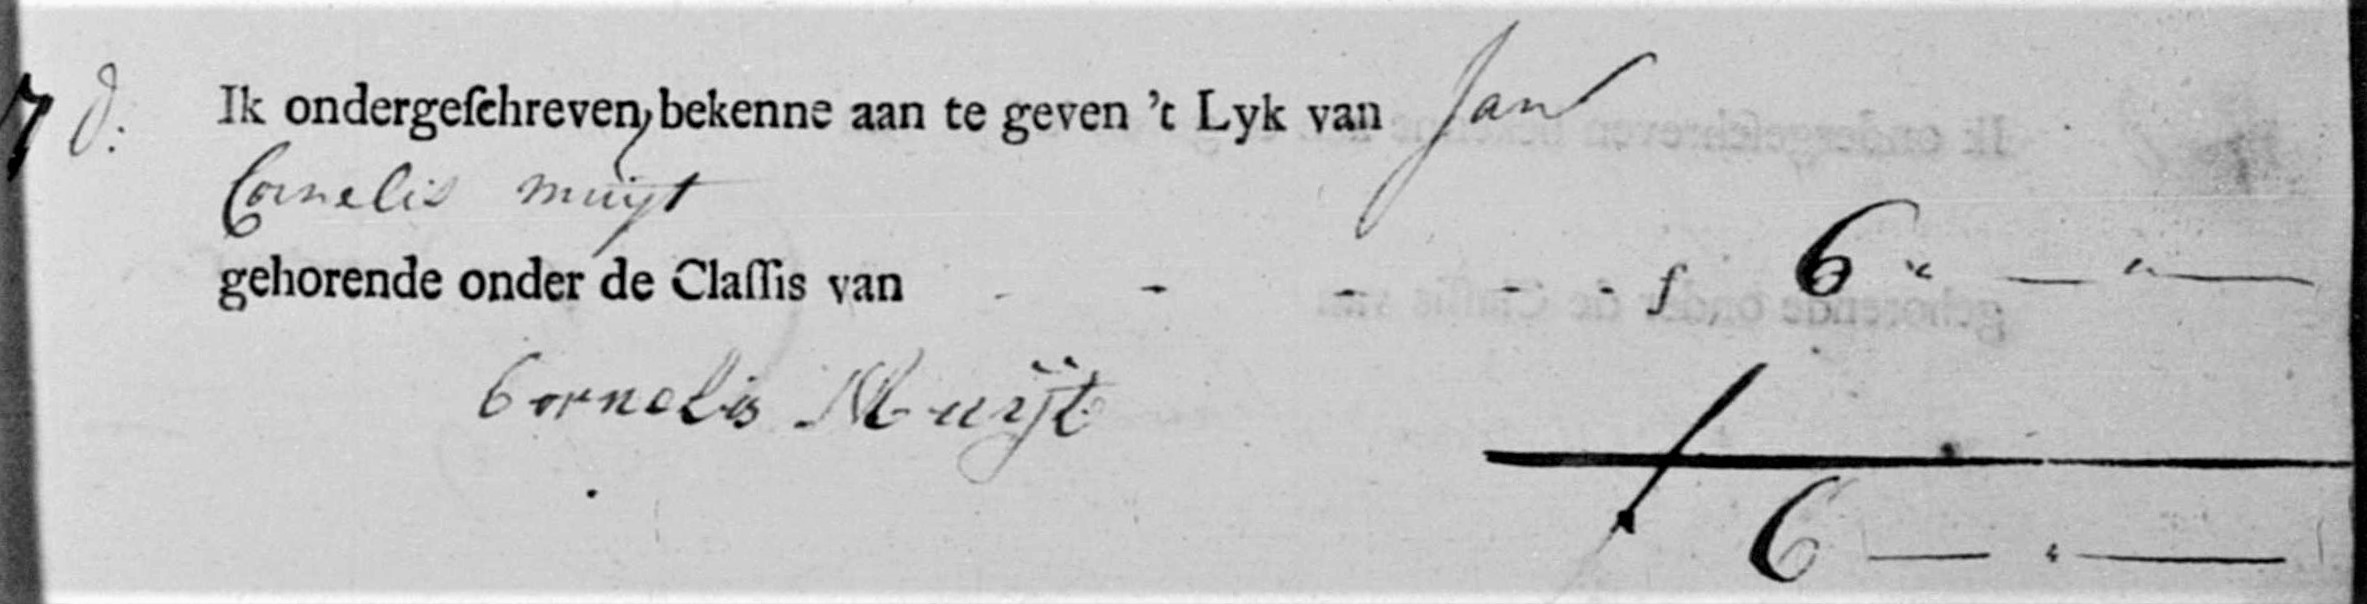 7 d: Ik ondergeſchreven, bekenne aan te geven 't Lyk van Jan
Cornelis muijt
gehorende onder de Claſſis van - - - - - f 6 " — " —
Cornelis Muijt
f 6 — " —